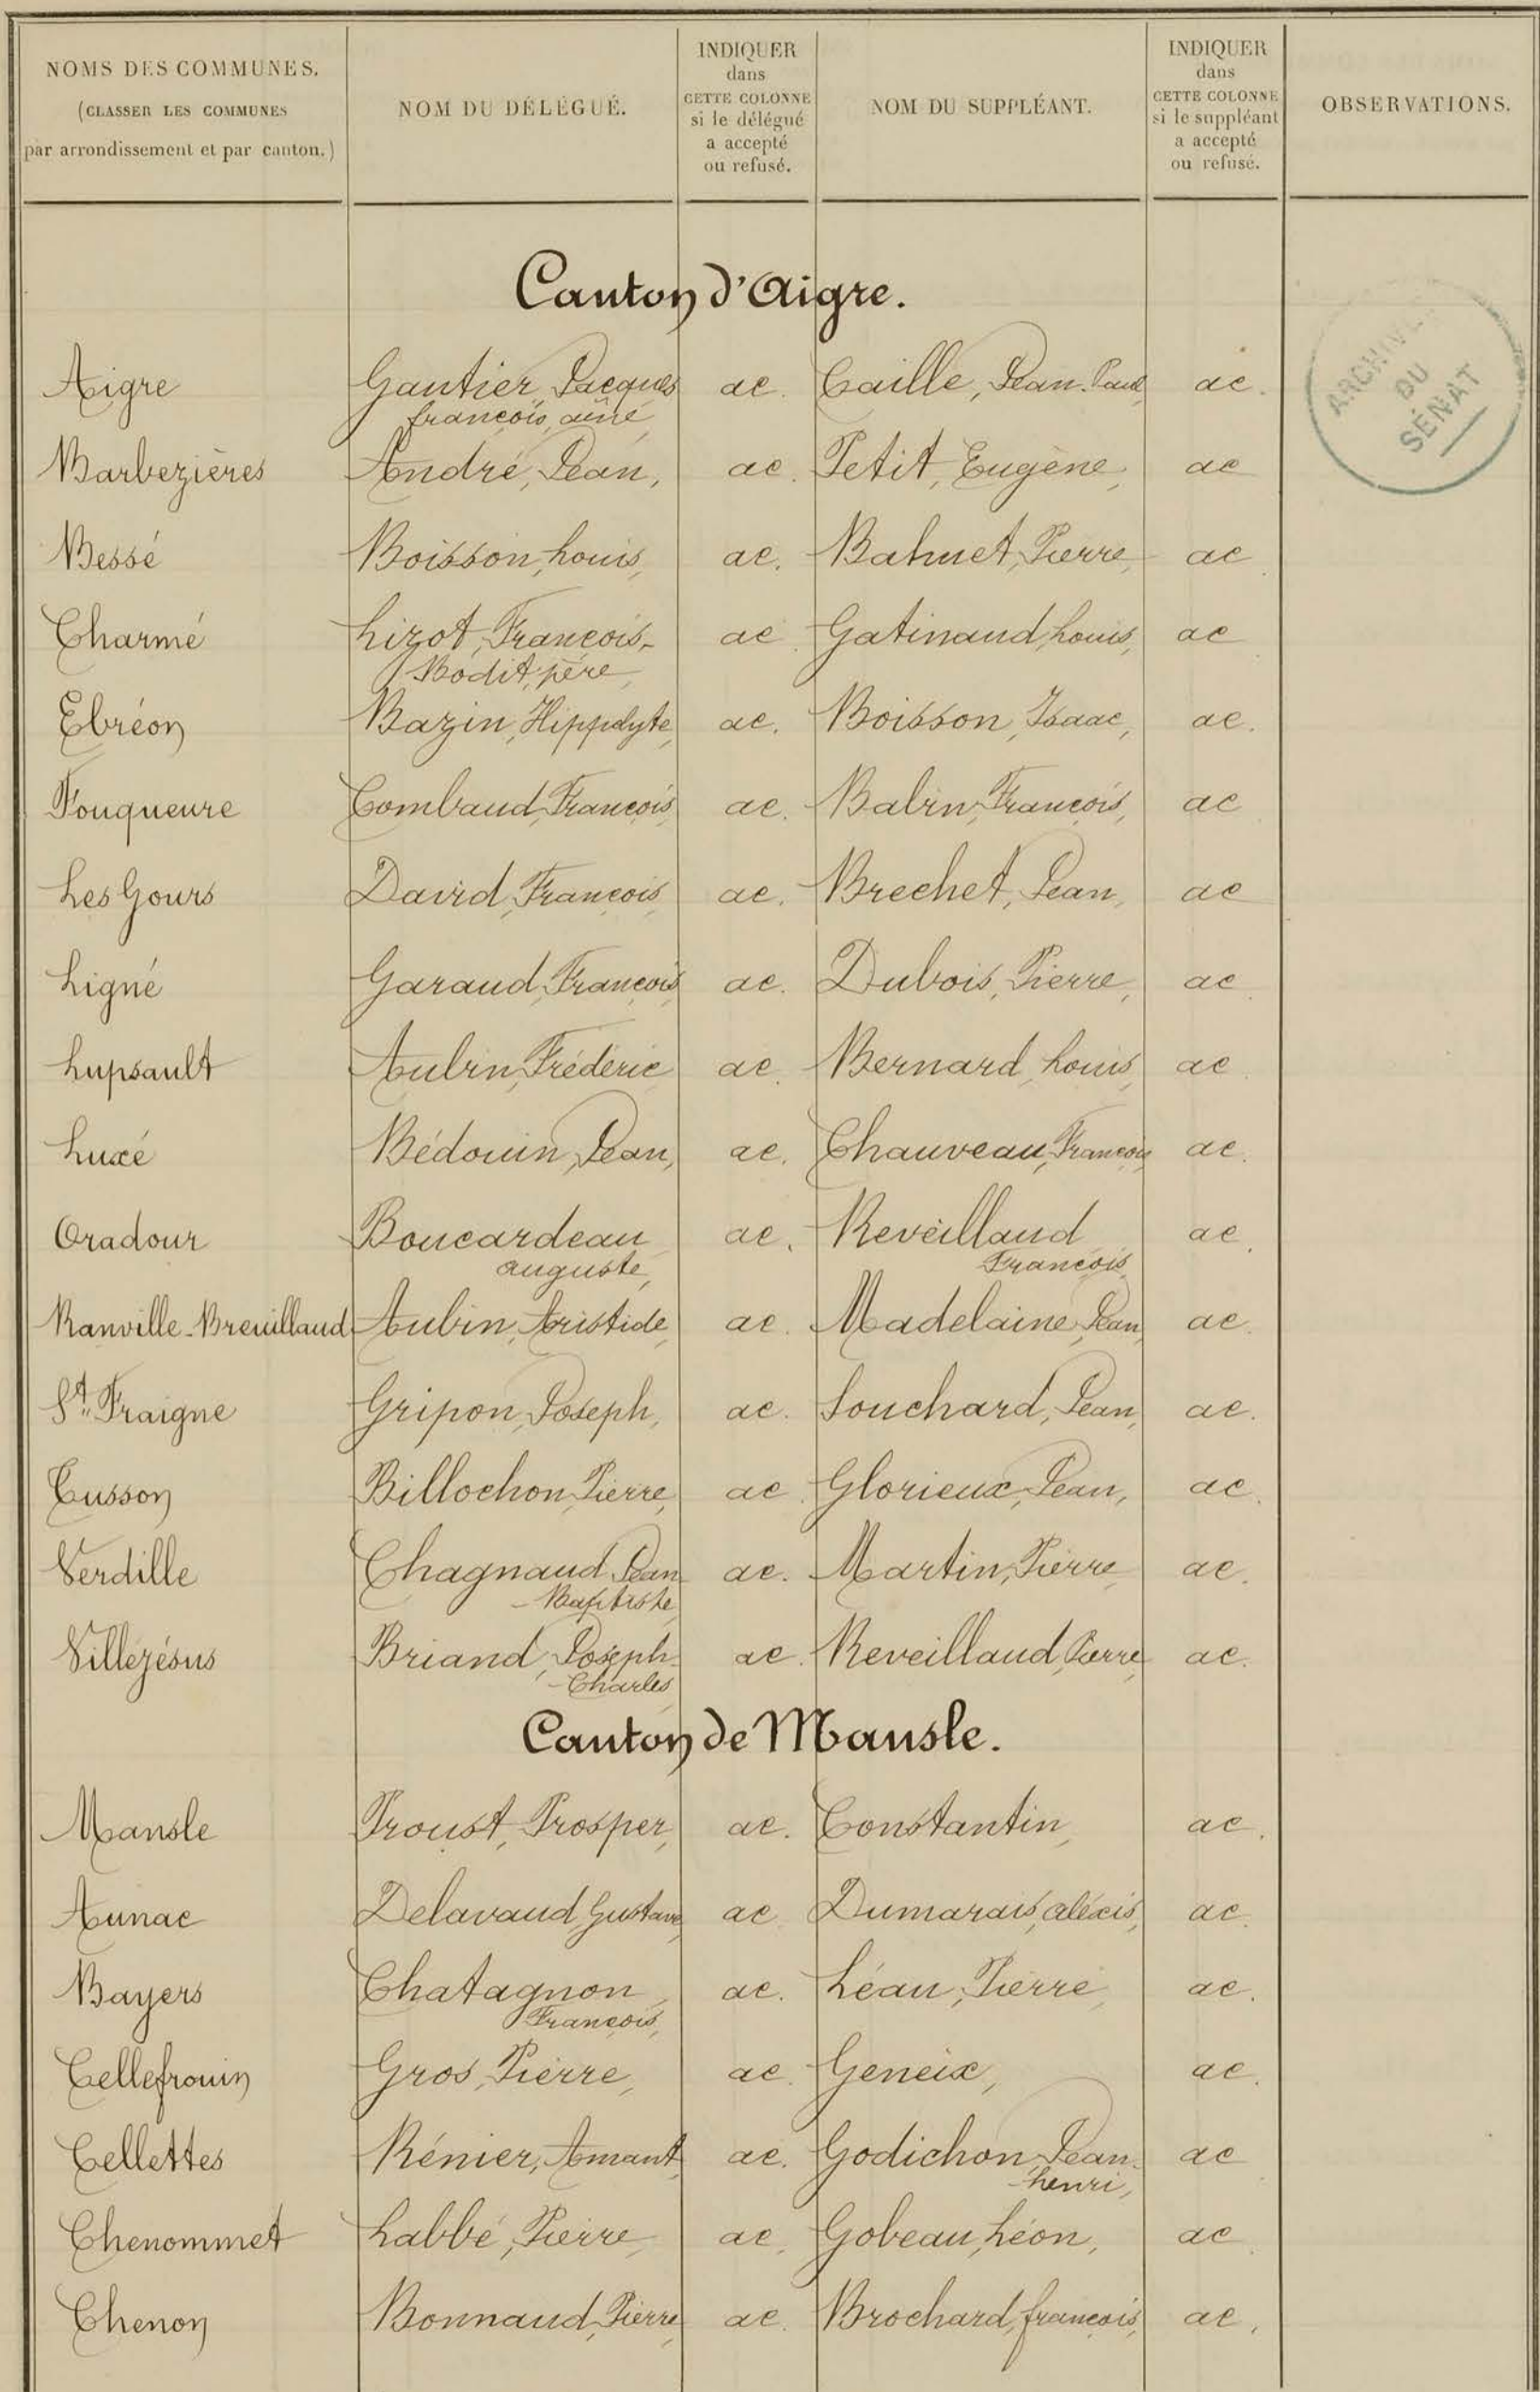 NOMS DES COMMUNES.
(CLASSER LES COMMUNES
par arrondissement et par canton.)
NOM DU DÉLÉGUÉ.
INDIQUER
dans
CETTE COLONNE
si le délégué
a accepté
ou refusé.
NOM DU SUPPLÉANT.
INDIQUER
dans
CETTE COLONNE
si le suppléant
a accepté
ou refusé.
OBSERVATIONS.
Canton d'Aigre.
ARCHIVES
DU
SÉNAT
Aigre Gautier, Jacques ac. Caille, Jean-Paul, ac.
françois, aîné,
Barbezières André, Jean, ac. Petit, Eugène, ac
Bessé Boisson, Louis, ac. Bahuet, Pierre, ac
Charmé Lizot, François- ac. Gatinaud, Louis, ac
Bodit, père,
Ebréon Bazin, Hippolyte, ac. Boisson, Isaac, ac.
Fouqueure Combaud, François, ac. Babin, François, ac
Les Gours David, François, ac. Brechet, Jean, ac
Ligné Garaud, François, ac. Dubois, Pierre, ac.
Lupsault Aubin, Fréderic ac. Bernard, Louis, ac.
Luxé Bédouin, Jean, ac. Chauveau, François ac.
Oradour Boucardeau ac. Reveillaud ac.
auguste, François,
Ranville-Breuillaud Aubin, Aristide, ac. Madelaine, Jean, ac.
St. Fraigne Gripon, Joseph, ac. Souchard, Jean, ac.
Tusson Billochon, Pierre, ac. Glorieux, Jean, ac.
Verdille Chagnaud, Jean- ac. Martin, Pierre, ac.
-Baptiste,
Villejésus Briand, Joseph- ac. Reveillaud, Pierre, ac.
-Charles,
Canton de Mansle.
Mansle Proust, Prosper, ac. Constantin, ac.
Aunac Delavaud, Gustave, ac. Dumarais, aléxis, ac.
Bayers Chatagnon, ac. Léau, Pierre, ac.
François,
Cellefrouin Gros, Pierre, ac. Geneix, ac.
Cellettes Rénier, Amant, ac. Godichon, Jean- ac
-henri,
Chenommet Labbé, Pierre, ac. Gobeau, Léon, ac.
Chenon Bonnaud, Pierre, ac. Brochard, françois, ac.